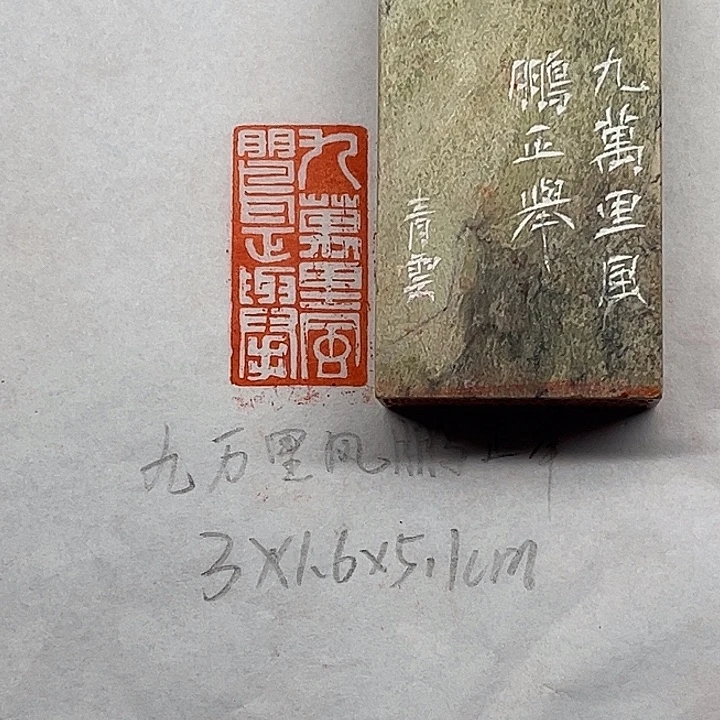 九萬里風
鵬正舉
九萬里風
鵬正舉
青雲
九万里风鹏正举
3X1.6X5.1cm